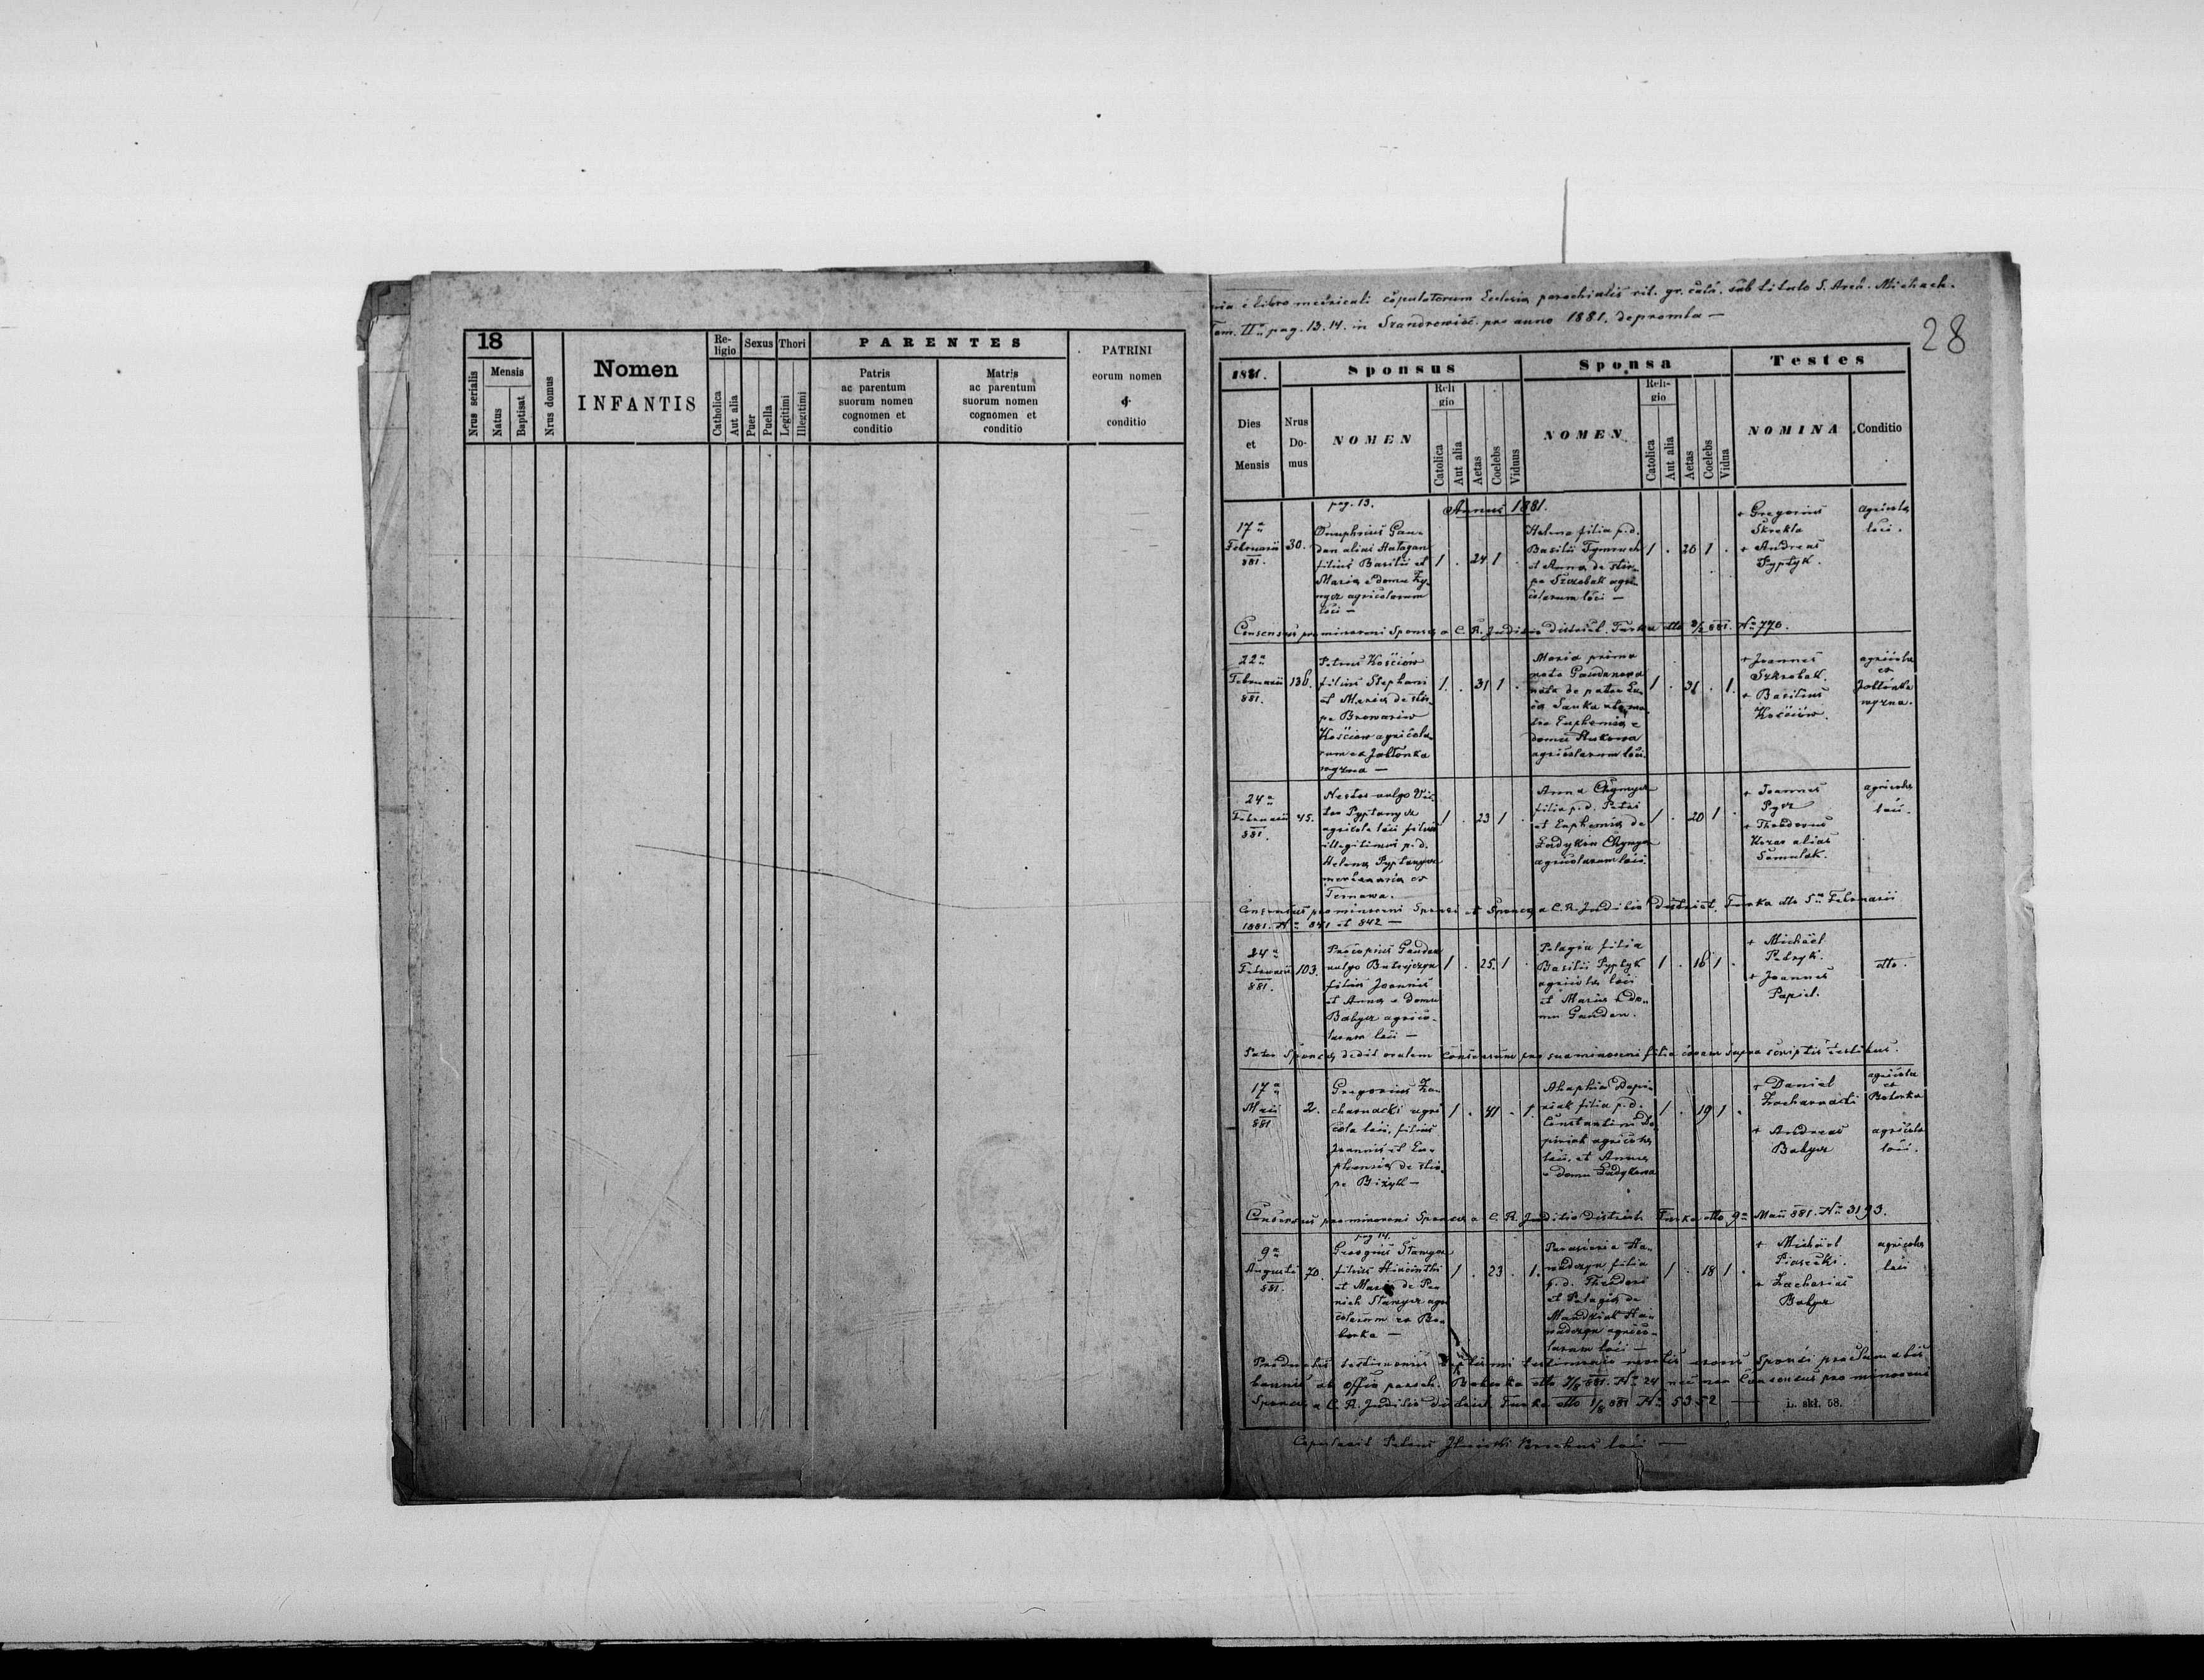 18
Nrus serialis
Mensis
Natus
Baptisat
Nrus domus
Nomen
INFANTIS
Re-
ligio
Catholica
Aut alia
Sexus
Puer
Puella
Thori
Legitimi
Illegitimi
PARENTES
Patris
ac parentum
suorum nomen
cognomen et
conditio
Matris
ac parentum
suorum nomen
cognomen et
conditio
PATRINI
eorum nomen
&
conditio
libro metricali copulatorum Ecclesiae parochialis rit. gr. cath. sub titulo S. Arch. Michael.
Tom. II pag. 13. 14. in Szandrowiec pro anno 1881. deprompta —
28
1881.
Sponsus
Sponsa
Testes
Dies
et
Mensis
Nrus
Do-
mus
NOMEN
Reli
gio
Catolica
Aut alia
Aetas
Coelebs
Viduus
NOMEN
Reli-
gio
Catolica
Aut alia
Aetas
Coelebs
Vidua
NOMINA
Conditio
pag. 13.
Annus 1881.
17a
Februarii
881.
30.
Onuphrius Gan-
dan alias Hatagan
filius Basilii et
Maria e domo
agricolarum
loci —
1 . 24 1 .
Helena filia p.d.
Basilii Tymruch
et Anna de stir-
pe Szkrobak agri-
colarum loci —
1 . 20 1 .
+ Gregorius
Skrekla
+ Andreas
Pyptyk.
agricola
loci.
Consensus pro minoreni Sponsa a C. R. Judicio district. Turka dto 3/2 881. No 770.
22a
Februarii
881.
136.
Petrus Kościów
filius Stephani
et Maria de stir-
pe Browariw
Kościów agricola-
rum ex Jabłonka
wyzna —
1 . 31 1 .
Maria primo
nata Gandanowa
nata de patre Lu-
ca Sanka et ma-
tre Euphemia e
domo Hukowa
agricolarum loci.
1 . 31 . 1.
+ Joannes
Szkrobak.
+ Basilius
Kościów.
agricola
ex
Jabłonka
wyzna.
24a
Februarii
881.
45.
Nestor vulgo Vic-
tor Pyptanycz
agricola loci filius
illegitimus p.d.
Helena Pyptanycz
mercenaria ex
Ternawa.
1 . 23 1 .
Anna Chymycz
filia p.d. Petri
et Euphemia de
Ładyków Chymycz
agricolarum loci.
1 . 20 1 .
+ Joannes
Pycz
+ Theodorus
Kizar alias
Semulak.
agricola
loci.
Consensus pro minoreni Sponsi et Sponsa a C. R. Judicio district. Turka dto 5a Februarii
1881. No 841 et 842 —
24a
Februarii
881.
103.
Procopius Gandan
vulgo
filius Joannis
et Anna e domo
Babycz agrico-
larum loci —
1 . 25. 1 .
Pelagia filia
Basilii Pyptyk
agricola loci
et Maria e do-
mo Gandan.
1 . 16 1 .
+ Michael
Petryk.
+ Joannes
Papiel.
dto.
Pater Sponsa dedit oralem consensum pro sua minoreni filia coram supra scriptis testibus.
17a
Maii
881
2.
Gregorius Za-
charnacki agri
cola loci, filius
Joannis et Eu-
phemia de stir-
pe Bizyk —
1 . 41 . 1.
Ahaphia Depi-
riak filia p.d.
Constantini De-
piriak agricola
loci, et Anna
e domo Ładykowa
1 . 19 1 .
+ Daniel
Zacharnacki
+ Andreas
Babycz
agricola
ex
Boberka
agricola
loci.
Consensus pro minoreni Sponsa a C. R. Judicio district. Turka dto 9a Maii 881. No 3193.
pag 14.
9a
Augusti
881.
70.
Georgius Stanycz
filius Hiacinthi
et Maria de Pa-
nich Stanycz agri
colarum ex Bo-
berka —
1 . 23 . 1.
Parascevia Ha-
wadczyn filia
p.d. Theodori
et Pelagia de
Mandziak Ha-
wadczyn agrico-
larum loci —
1 . 18 1 .
+ Michael
Piasecki.
+ Zacharias
Babycz
agricola
loci
Productis testimoniis baptismi testimonio mortis uxoris Sponsi proclamatis
bannis ab offio paroch. Boberka dto 7/8 881. No 24 nec non Consensus pro minoreni
Sponsa a C. R. Judicio district. Turka dto 1/8 881 No 5352 —
L. skł. 58.
Copulavit Petrus Parochus loci —